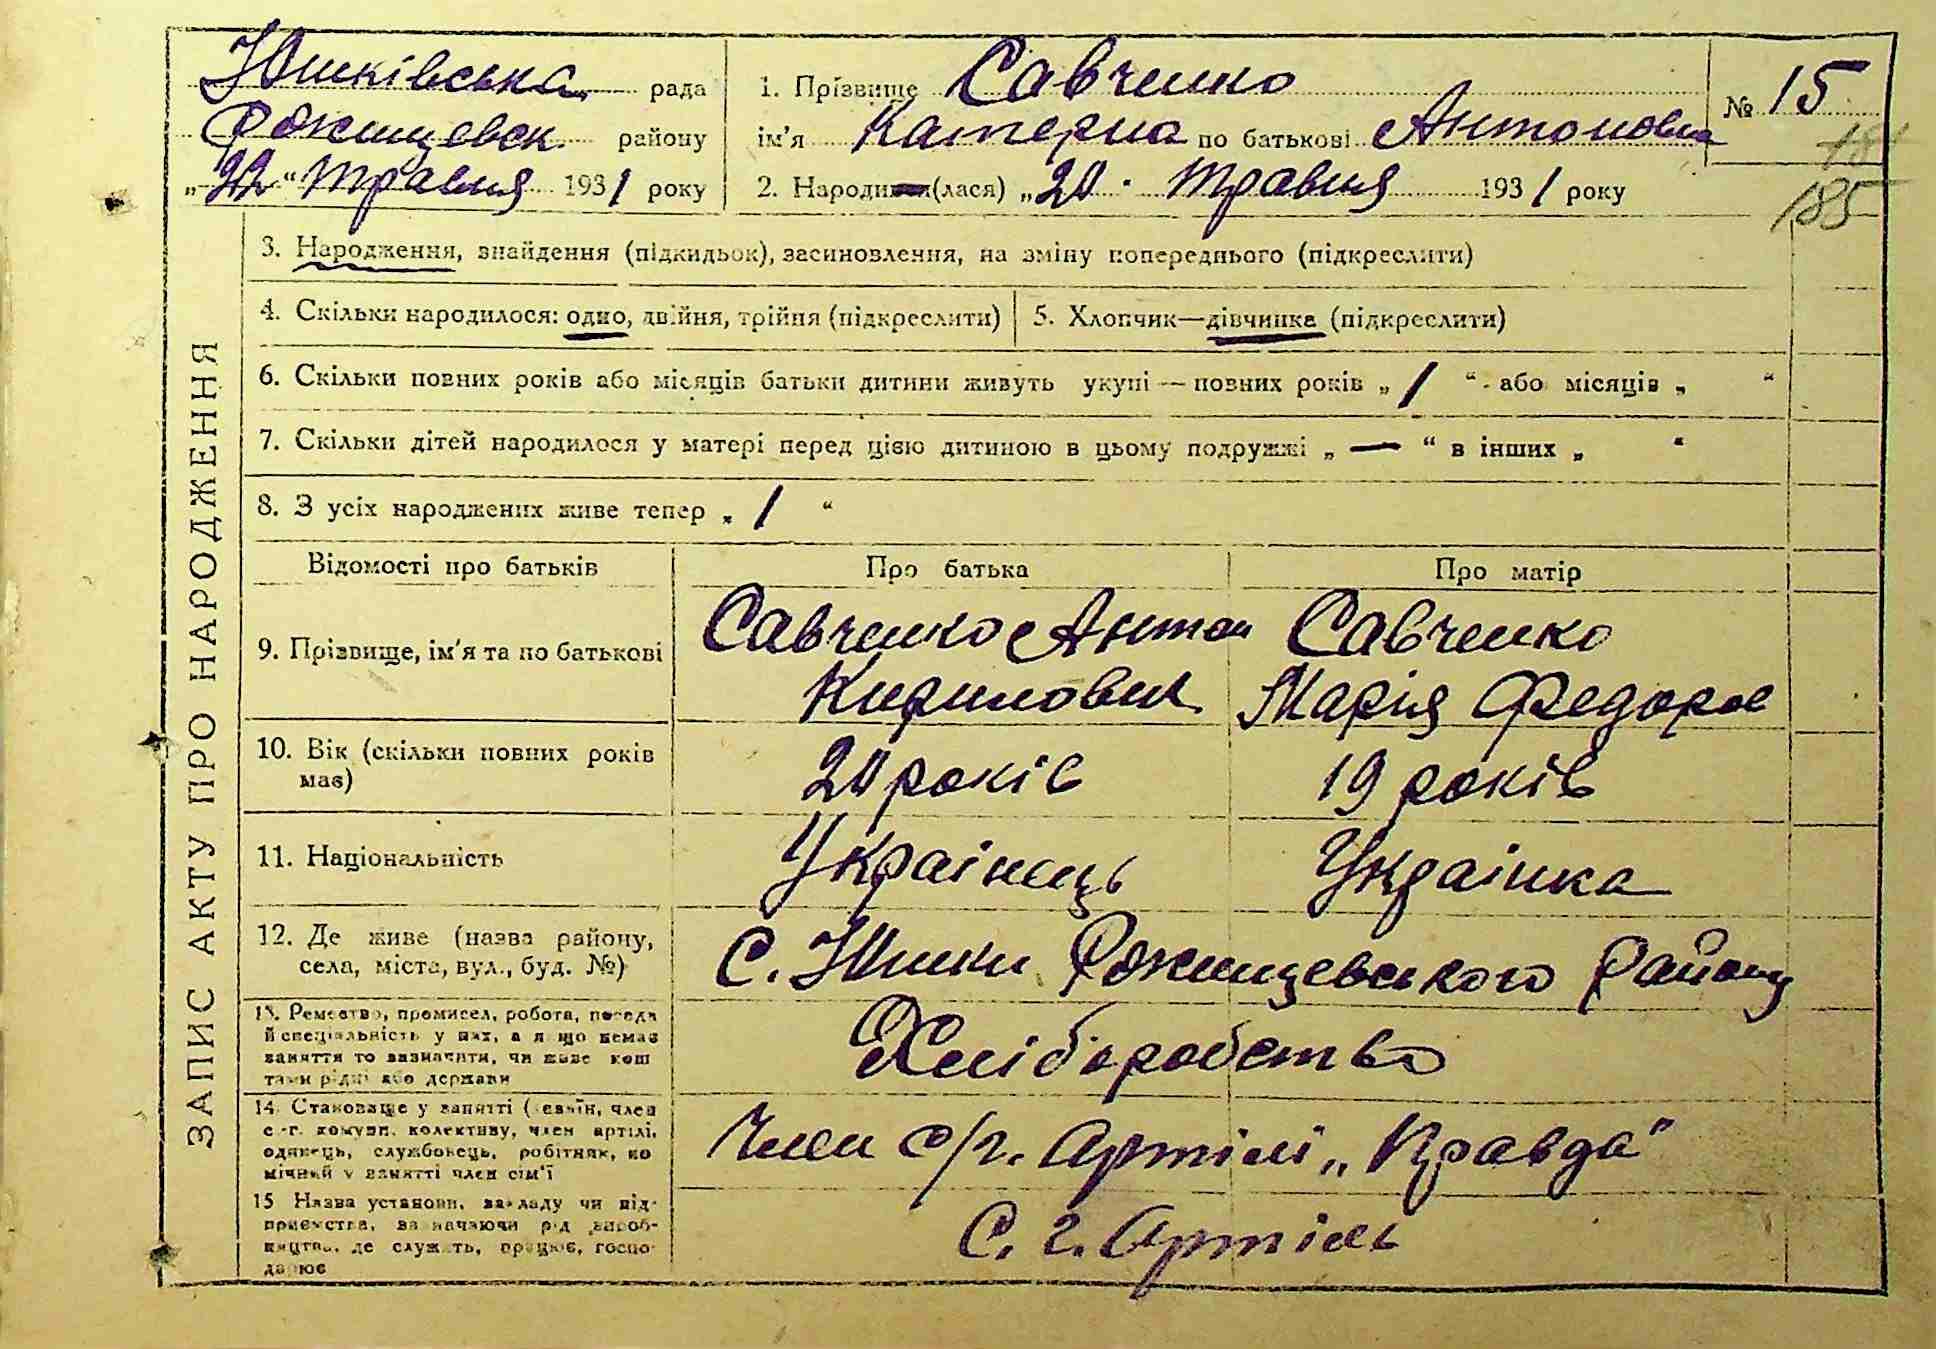 Юшківська рада
Ржищевск району
„22“ травня 1931 року
1. Прізвище Савченко
ім'я Катерна по батькові Антоновна
2. Народи (лася) „20 травня 1931 року
№ 15
18
185
ЗАПИС АКТУ ПРО НАРОДЖЕННЯ
3. Народження, знайдення (підкидьок), засиновлення, на зміну попереднього (підкреслити)
4. Скільки народилося: одно, двійня, трійня (підкреслити)
5. Хлопчик—дівчинка (підкреслити)
6. Скільки повних років або місяців батьки дитини живуть укупі — повних років „ 1 “ або місяців „ “
7. Скільки дітей народилося у матері перед цією дитиною в цьому подружжі „ — “ в інших „ “
8. З усіх народжених живе тепер „ 1 “
Відомості про батьків Про батька Про матір
9. Прізвище, ім'я та по батькові
Савченко Антон
Кирилович
Савченко
Марія Федоров
10. Вік (скільки повних років
має)
20 років
19 років
11. Національність
Українець
Українка
12. Де живе (назва району,
села, міста, вул., буд. №)
С. Юшки Ржищевського Району
13. Ремество, промисел, робота, посада
й спеціальність у них, а якщо немає
заняття то визначити, чи живе кош
тами рідні або держави
Хліборобство
14. Становище у занятті ( член
с.-г. комуни, колективу, член артілі,
одинець, службовець, робітник, по
мічний у занятті член сім'ї
Член с/г. Артілі „Правда“
15 Назва установи, закладу чи під-
приємства, зазначаючи рід вироб-
ництва, де служить, працює, госпо-
дарює
С. г. Артіль